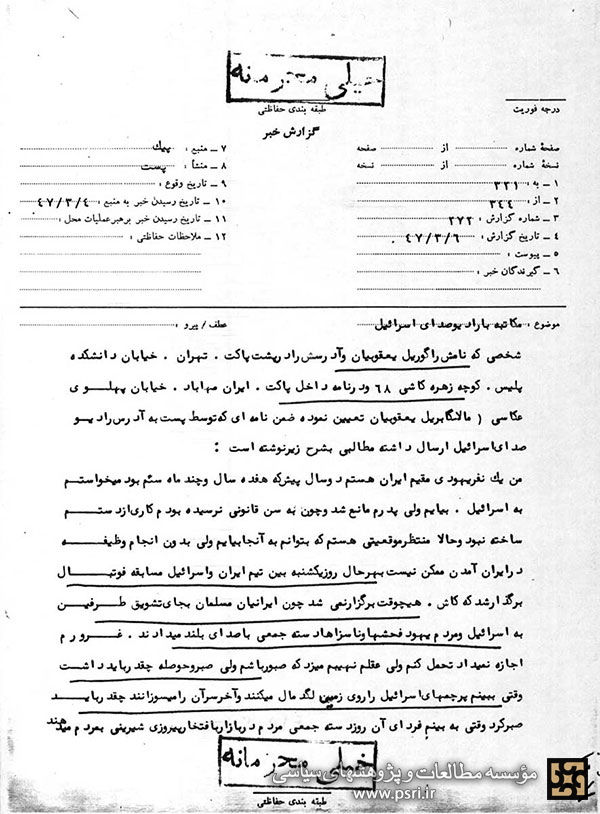 خیلی محرمانه
طبقه بندی حفاظتی
درجه فوریت
گزارش خبر
صفحهٔ شماره از صفحه
نسخهٔ شماره از نسخه
۱ ـ به : ۳۲۱
۲ ـ از : ۳۴۴
۳ ـ شماره گزارش : ۲۷۲
۴ ـ تاریخ گزارش : ۴۷/۳/۶
۵ ـ پیوست :
۶ ـ گیرندگان خبر :
۷ ـ منبع : پیك
۸ ـ منشأ : پست
۹ ـ تاریخ وقوع :
۱۰ ـ تاریخ رسیدن خبر به منبع : ۴۷/۳/۴
۱۱ ـ تاریخ رسیدن خبر برهبرعملیات محل :
۱۲ ـ ملاحظات حفاظتی :
موضوع : مکاتبه با رادیو صدای اسرائیل عطف / پیرو :
شخصی که نامش را گوریل یعقوبیان وآدرسش را درپشت پاکت . تهران . خیابان دانشکده
پلیس . کوچه زهره کاشی ۶۸ ودرنامه داخل پاکت . ایران مهاباد . خیابان پهلوی
عکاسی ( مالانگابریل یعقوبیان تعیین نموده ضمن نامه ای که توسط پست به آدرس رادیو
صدای اسرائیل ارسال داشته مطالبی بشرح زیرنوشته است :
من یك نفریهودی مقیم ایران هستم دوسال پیش که هفده سال وچند ماه سنم بود میخواستم
به اسرائیل . بیایم ولی پدرم مانع شد وچون به سن قانونی نرسیده بودم کاری ازدستم
ساخته نبود وحالا منتظرموقعیتی هستم که بتوانم به آنجا بیایم ولی بدون انجام وظیفه
درایران آمدن ممکن نیست بهرحال روزیکشنبه بین تیم ایران واسرائیل مسابقه فوتبال
برگذارشد که کاش . هیچوقت برگزارنمی شد چون ایرانیان مسلمان بجای تشویق طرفین
به اسرائیل ومردم یهود فحشها وناسزاها دسته جمعی باصدای بلند میدادند . غرورم
اجازه نمیداد تحمل کنم ولی عقلم نهیبم میزد که صبورباشم ولی صبروحوصله چقدرباید داشت
وقتی ببینم پرچمهای اسرائیل را روی زمین لگد مال میکنند وآخرسرآن رامیسوزانند چقدرباید
صبرکرد وقتی به بینم فردای آن روز دسته جمعی مردم دربازاربافتخارپیروزی شیرینی بمردم میدهند
خیلی محرمانه
طبقه بندی حفاظتی
مؤسسه مطالعات و پژوهشهای سیاسی
www.psri.ir